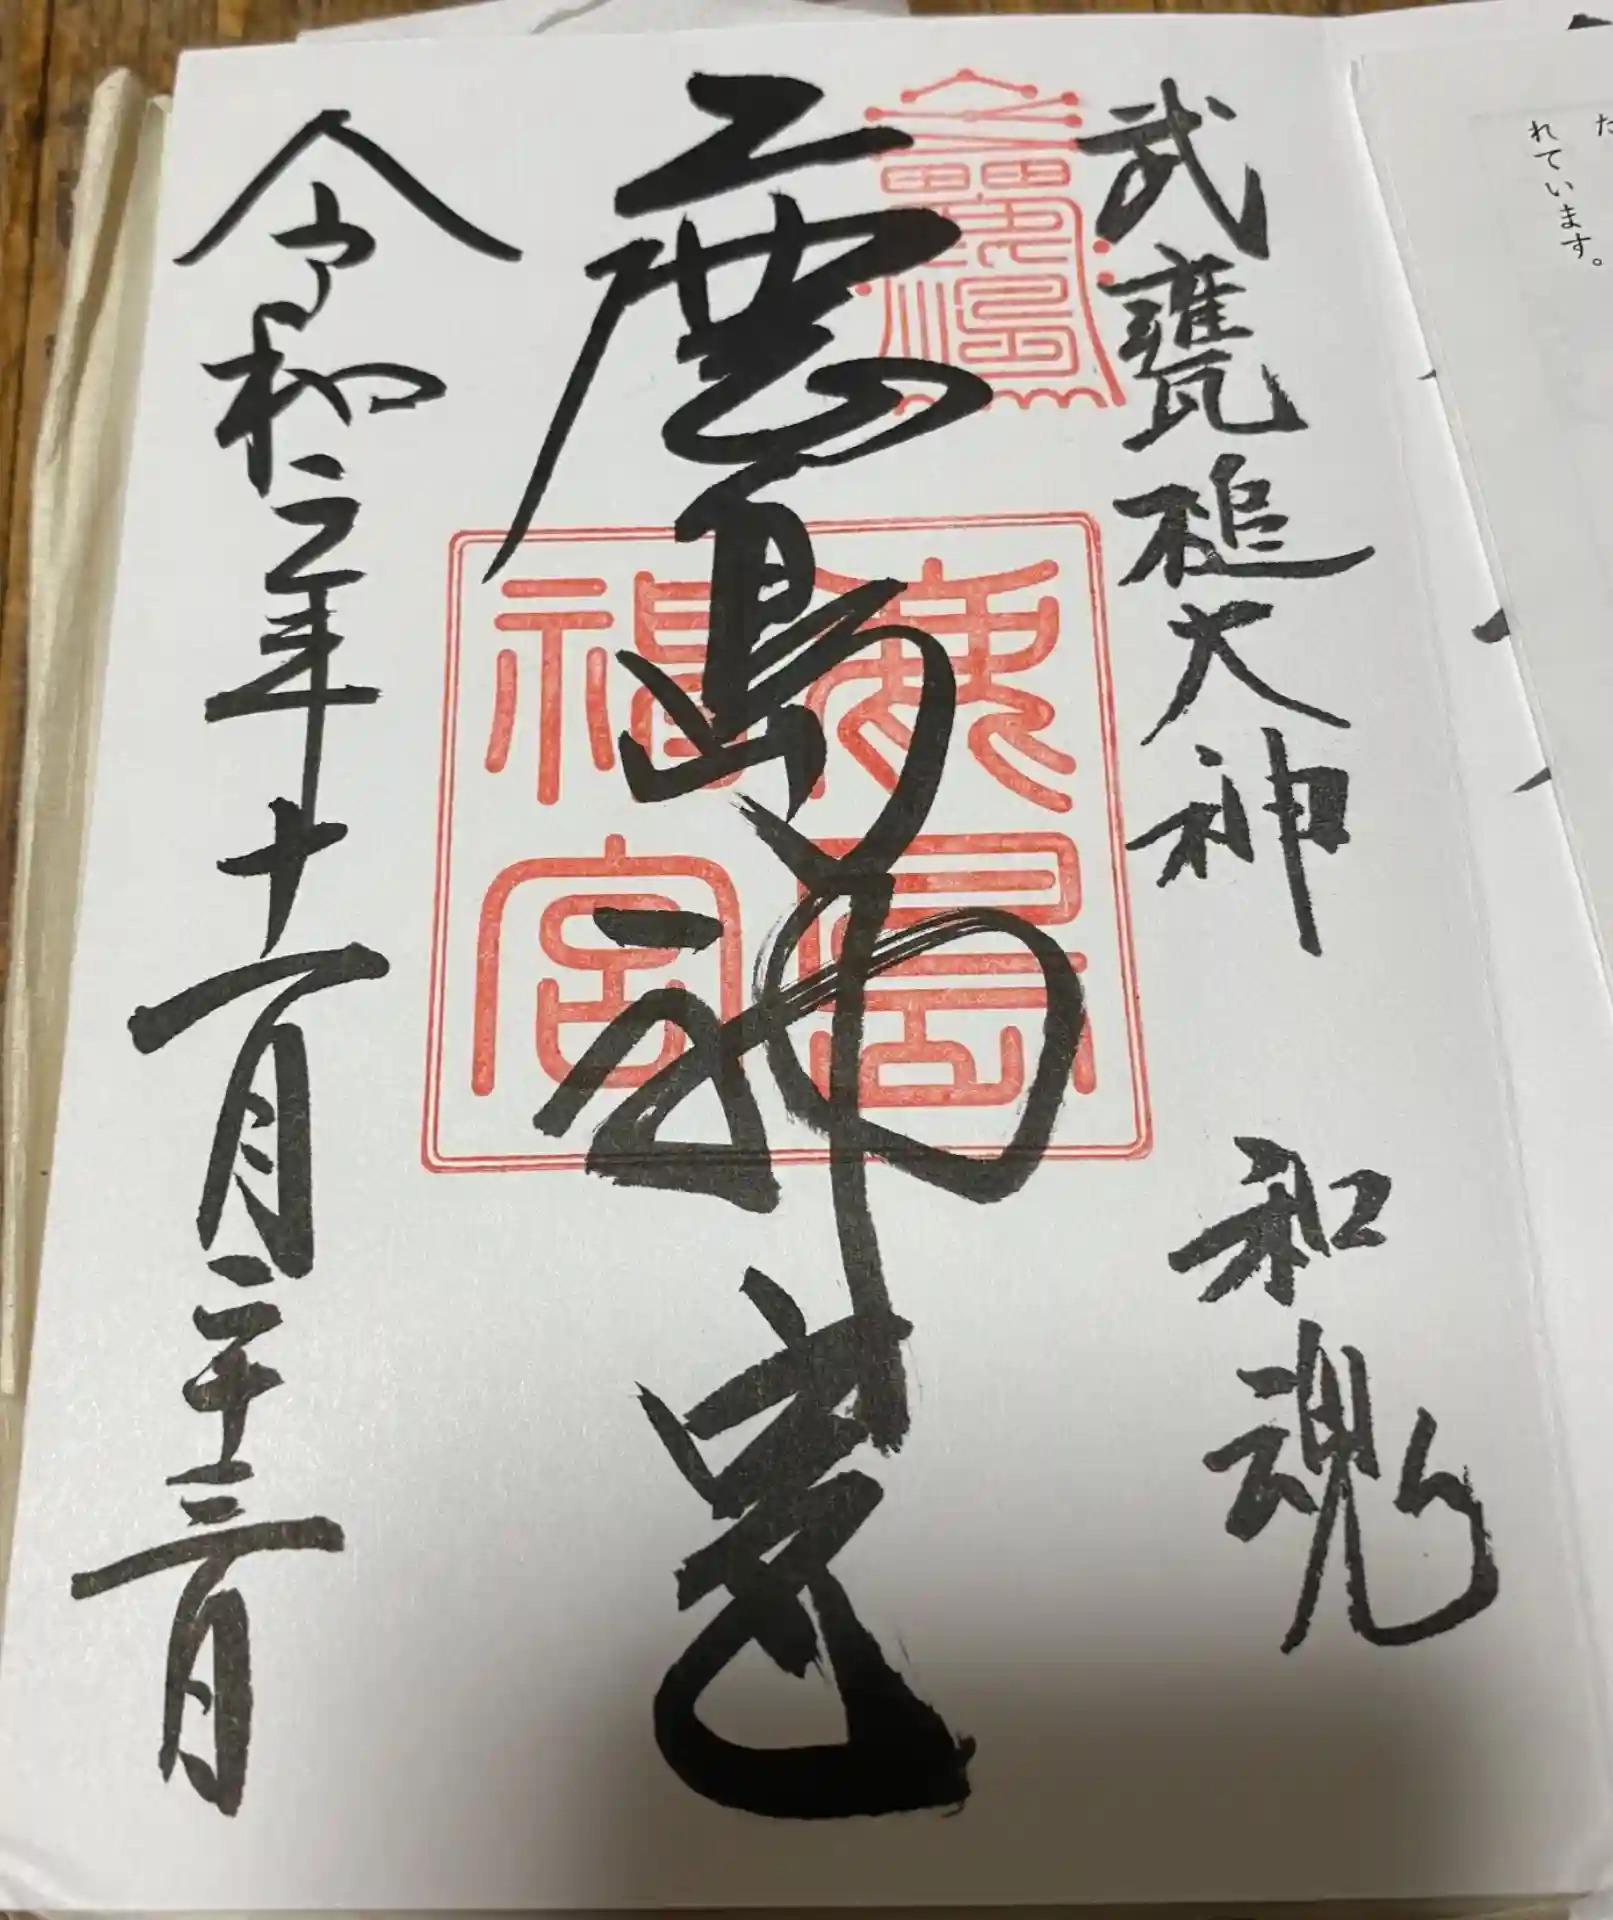 た
れています。
武甕槌大神 和魂
鹿島神宮
令和二年十一月二十三日